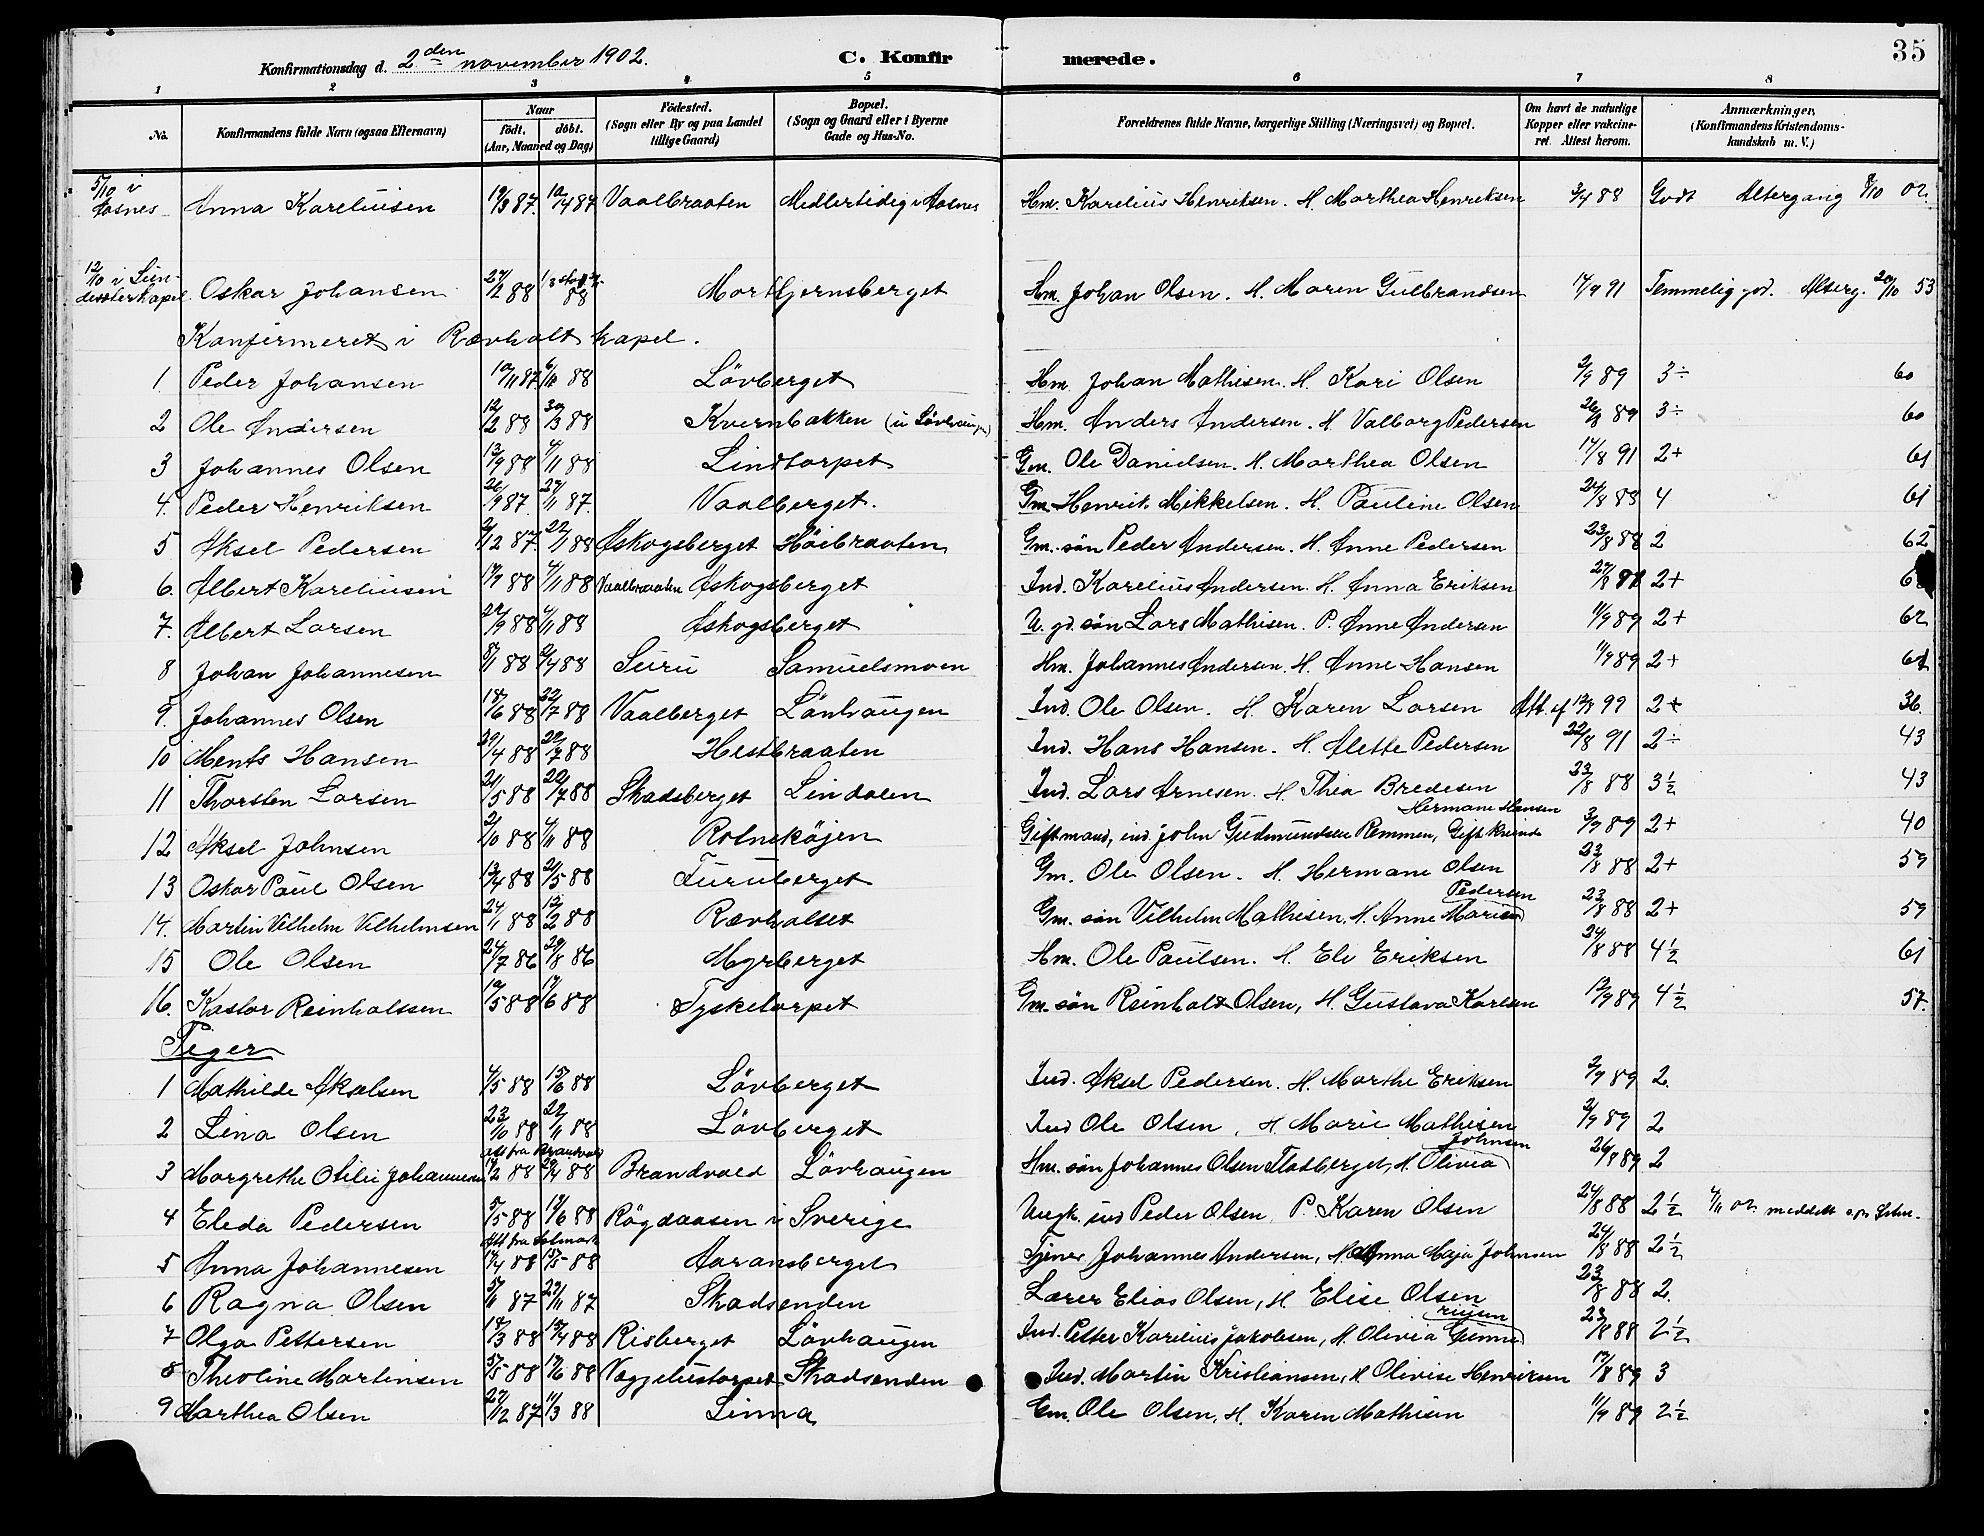 35
Konfirmationsdag d. 2den november 1902. C. Konfirmerede.
1 2 3 4 5 6 7 8
No. Konfirmandens fulde Navn (ogsaa Efternavn) Naar født. døbt. (Aar, Maaned og Dag) Fødested. (Sogn eller By og paa Landet tillige Gaard) Bopæl. (Sogn og Gaard eller i Byerne Gade og Hus-No. Forældrenes fulde Navne, borgerlige Stilling (Næringsvei) og Bopæl. Om havt de naturlige Kopper eller vakcineret. Attest herom. Anmærkninger, (Konfirmandens Kristendomskundskab m. V.)
5/10 i Aasnes Anna Kareliusen 19/3 87. 10/4 87 Vaalbraaten Midlertidig i Aasnes Hm. Karelius Henriksen. H. Marthea Henriksen 3/4 88 Godt Altergang 8/10 02.
12/10 i kapel Oskar Johansen 27/2 88 88 Mortkjernsberget Hm. Johan Olsen. H. Maren Gulbrandsen 17/9 91 Temmelig god. Alterg. 20/10 53
Konfirmeret i Rævholt kapel.
1 Peder Johansen 19/11 87. 6/12 88 Lövberget Hm. Johan Mathisen. H. Kari Olsen 2/9 89 3÷ 60
2 Ole Andersen 12/2 88 30/3 88 Kvernbakken Hm. Anders Andersen. H. Valborg Pedersen 26/8 89 3÷ 60
3 Johannes Olsen 13/9 88 4/11 88 Lindtorpet Gm. Ole Danielsen. H. Marthea Olsen 17/8 91 2+ 61
4. Peder Henriksen 26/9 87. 27/11 87. Vaalberget. Gm. Henrik Mikkelsen. H. Pauline Olsen 24/8 88 4 61
5 Aksel Pedersen 2/12 87. 22/1 88 Askogsberget Höibraaten Gm. sön Peder Andersen. H. Anne Pedersen 23/8 88 2 62
6. Albert Kareliusen 17/9 88 4/11 88 Vaalbraaten Askogsberget Ind. Karelius Andersen. H. Anna Eriksen 2+
7. Albert Larsen 29/9 88 4/11 88 Askogsberget U. gd. sön Lars Mathisen. P. Anne Andersen 11/9 89 2+ 62
8 Johan Johannesen 8/1 88 2/4 88 Suru Samuelsmoen Hm. Johannes Andersen. H. Anne Hansen 11/9 89 2+
9. Johannes Olsen 18/6 88 22/7 88 Vaalberget Lövhaugen Ind. Ole Olsen. H. Karen Larsen Att. af 13/8 99 2+ 36.
10 Ments Hansen 29/4 88 22/7 88 Hestbraaten Ind. Hans Hansen. H. Alette Pedersen 22/8 91 2÷ 43
11 Thorsten Larsen 21/5 88 22/7 88 Skadsberget Lindalen Ind. Lars Arnesen. H. Thea Bredesen 23/8 88 3½ 43
12 Aksel Johnsen 2/10 88 4/11 88 Rotneköjen Giftmand, ind. John Gudmundsen Remmen, Gift kvinde Hermane Hansen 3/9 89 2+ 40
13 Oskar Paul Olsen 13/4 88 21/5 88 Furuberget Gm. Ole Olsen. H. Hermane Olsen 23/8 88 2+ 59
14. Martin Vilhelm Vilhelmsen 24/1 88 12/2 88 Rævholset Gm. sön Vilhelm Mathisen, H. Anne Marie Pedersen 23/8 88 2+ 59
15 Ole Olsen 24/7 86 29/8 86 Myrberget Hm. Ole Paulsen. H. Eli Eriksen 24/8 88 4½ 61
16. Kastor Reinholtsen 10/5 88 17/6 88 Tysketorpet Gm. sön Reinholt Olsen, H. Gustava Karlsen 12/9 89 4½ 57.
Piger
1 Mathilde Akselsen 4/5 88 15/6 88 Lövberget Ind. Aksel Pedersen. H. Marthe Eriksen 2/9 89 2.
2 Lina Olsen 23/10 88 22/11 88 Lövberget Ind Ole Olsen, H. Marie Mathisen 2/9 89 2
3 Margrethe Otilie Johannesen Att fra Brandvold 14/2 88 29/4 88 Brandvold Lövhaugen Hm. sön Johannes Olsen Stadberget, H. Olivia Johnsen 26/8 89 2
4 Eleda Pedersen 5/5 88 17/6 88 Rögdaasen i Sverige Ungk. ind Peder Olsen, P. Karen Olsen 24/8 88 2½ 4/11 02 meddelt
5 Anna Johannesen 14/4 88 13/5 88 Aaransberget Tjener Johannes Andersen, H. Anna Maja Johnsen 24/8 88 2½
6 Ragna Olsen 5/11 87 29/11 87 Skadsenden Lærer Elias Olsen, H. Elise Olsen 23/8 88 2.
7 Olga Pettersen 18/3 88 15/4 88 Risberget Lövhaugen Ind. Petter Karelius Jakobsen, H. Olivia Gunneriusen 23/8 88 2½
8 Theoline Martinsen 5/5 88 17/6 88 Skadsenden Ind. Martin Kristiansen, H. Olivise Henriksen 17/8 89 3
9 Marthea Olsen 27/12 87 11/3 88 Linna Gm. Ole Olsen, H. Karen Mathisen 11/9 89 2½